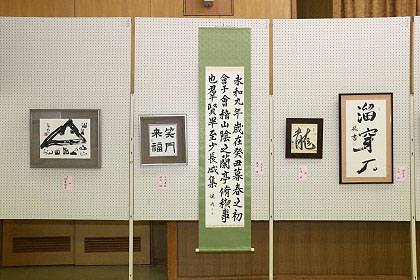 笑門
来福
永和九年歳在癸丑暮春之初
會于會稽山陰之蘭亭脩稧事
也羣賢畢至少長咸集
龍
溜穿石